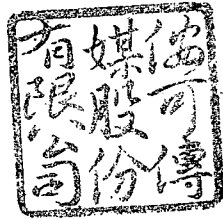 可傳
媒股份
有限公司